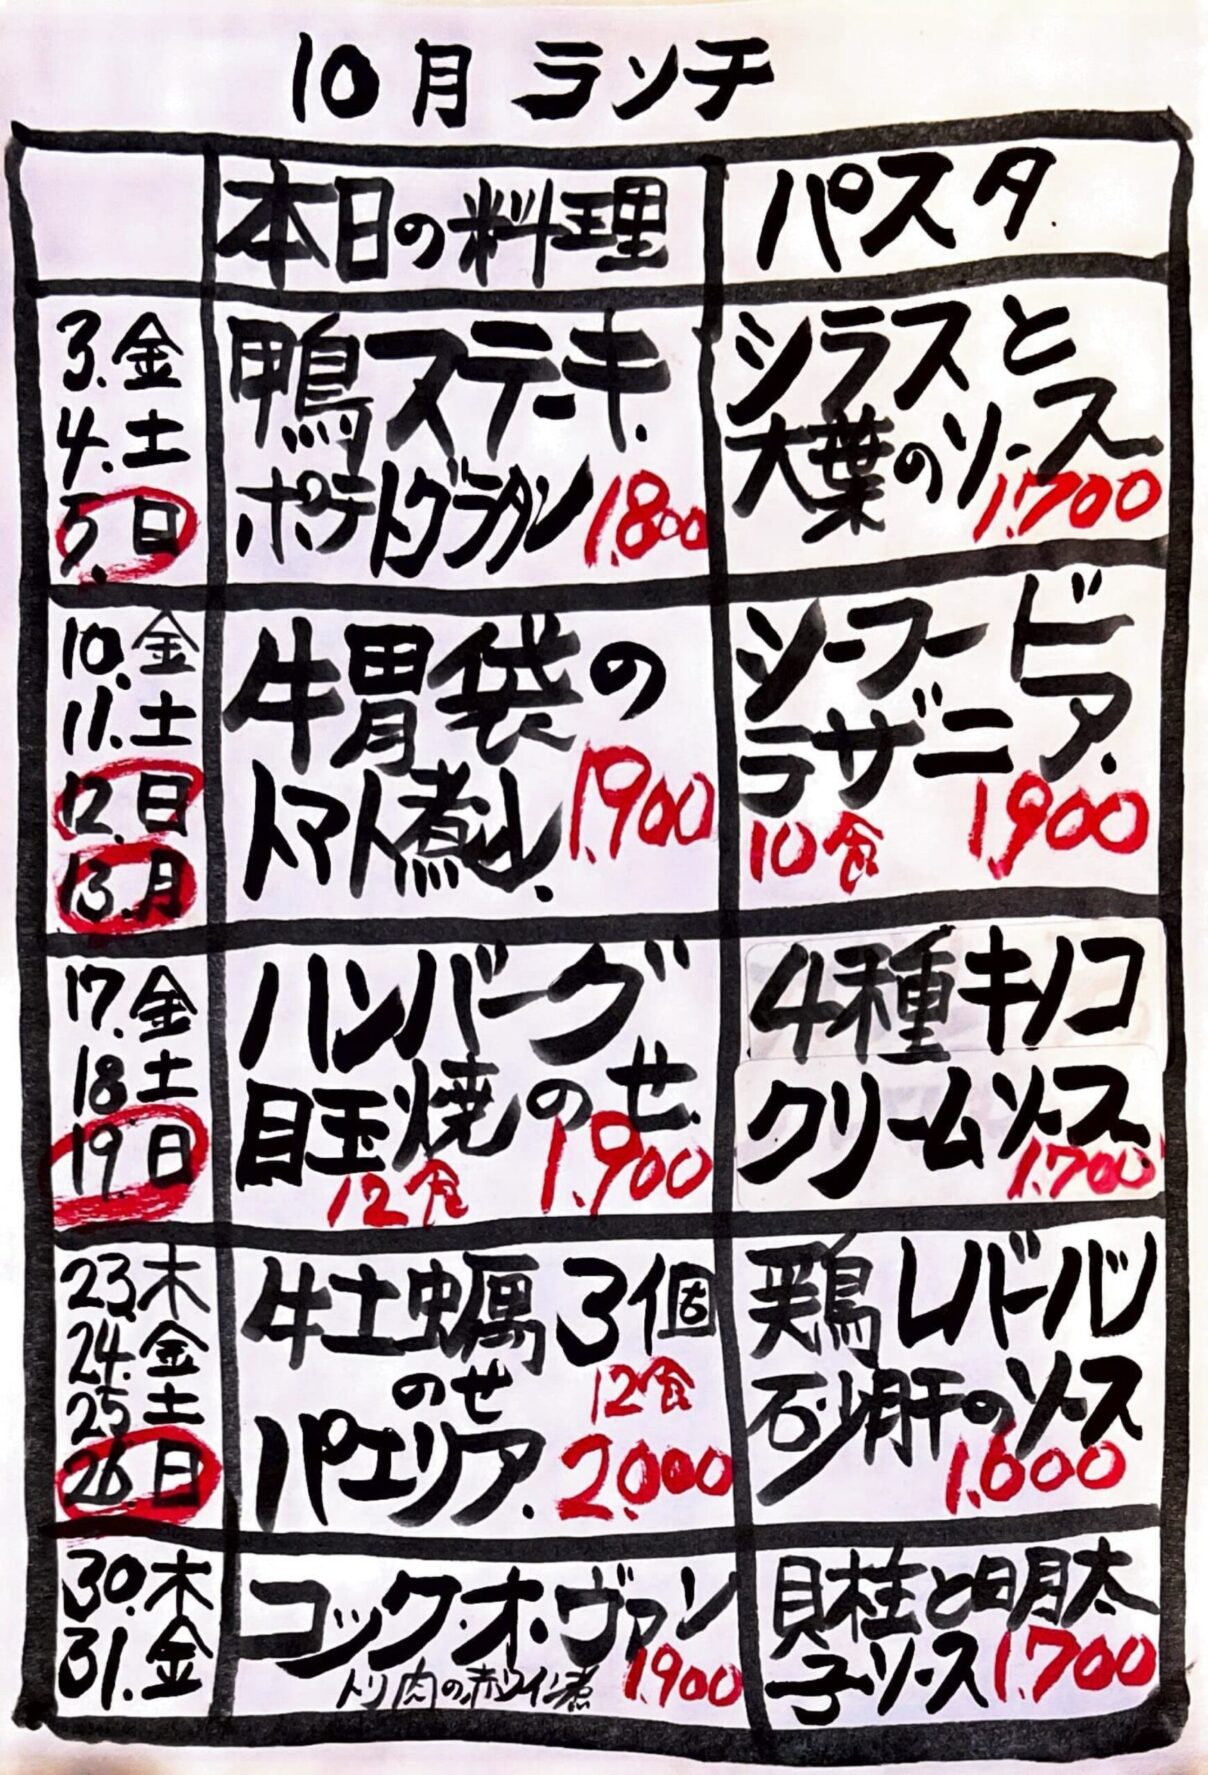 10月 ランチ
本日の料理
パスタ
3.金
4.土
5.日
鴨ステーキ
ポテトグラタン 1.800
シラスと
大葉のソース
1.700
10.金
11.土
12.日
13.月
牛胃袋の
トマト煮込
1.900
シーフード
ラザニア
10食 1.900
17.金
18.土
19.日
ハンバーグ
目玉焼のせ
12食 1.900
4種キノコ
クリームソース
1.700
23.木
24.金
25.土
26.日
牡蠣3個
のせ 12食
パエリア. 2.000
鶏レバー
砂肝のソース
1.600
30.木
31.金
コック・オ・ヴァン
トリ肉の赤ワイン煮 1.900
貝柱と明太
子ソース 1.700